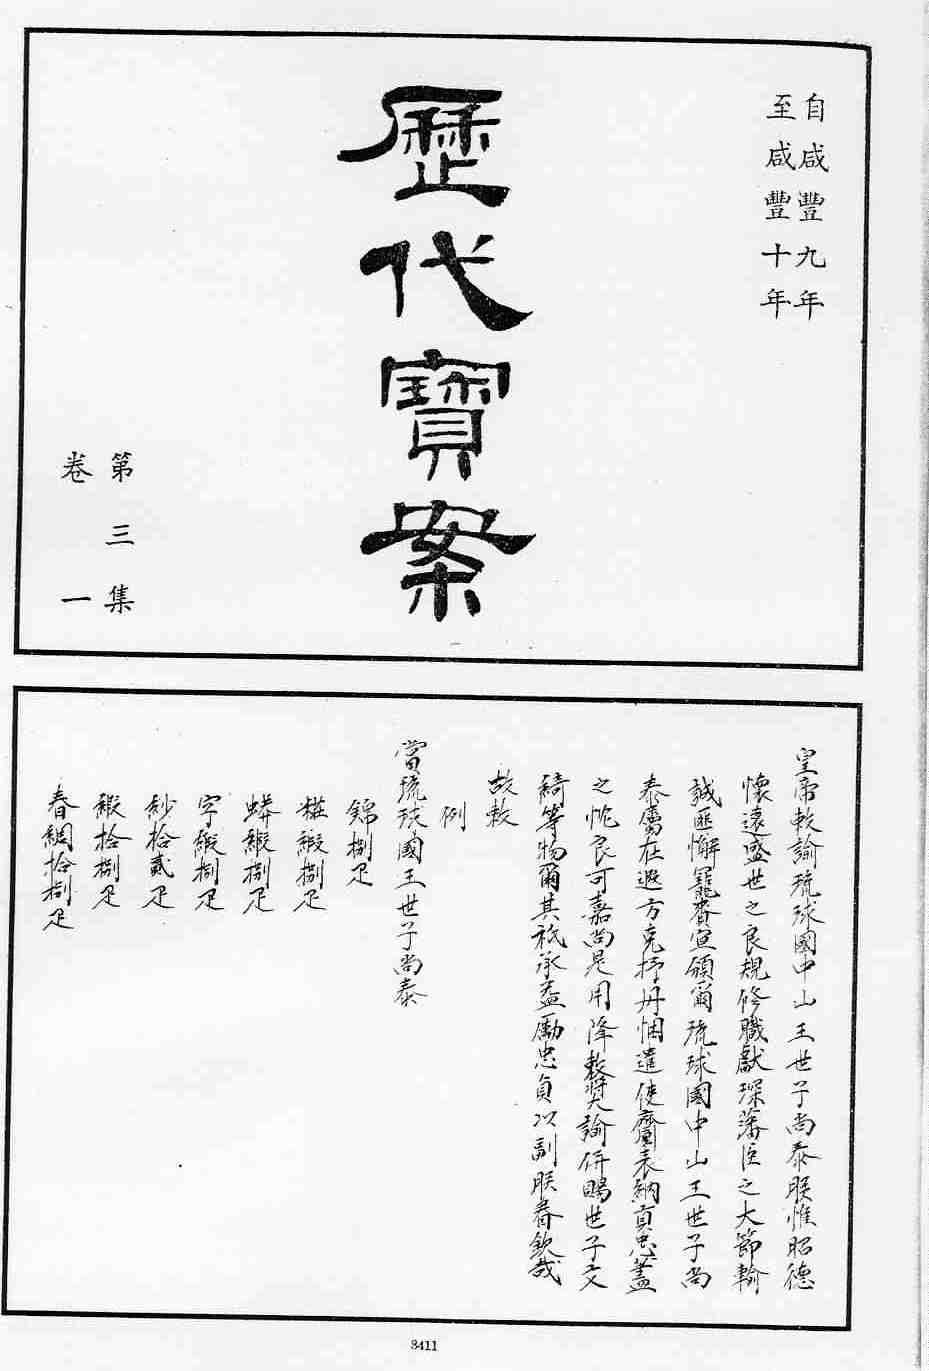 自咸豐九年
至咸豐十年
歷代寶案
第三集
卷一
皇帝敕諭琉球國中山王世子尚泰朕惟昭德
懷遠盛世之良規修職獻琛藩臣之大節輸
誠匪懈寵賚宣頒爾琉球國中山王世子尚
泰屬在遐方克抒丹悃遣使齎表納貢忠藎
之忱良可嘉尚是用降敕奬諭併賜世子文
綺等物爾其祗承益勵忠貞以副朕眷欽哉
故敕
例
當琉球國王世子尚泰
錦捌疋
粧緞捌疋
蟒緞捌疋
字緞捌疋
紗拾貳疋
緞拾捌疋
春綢拾捌疋
3411